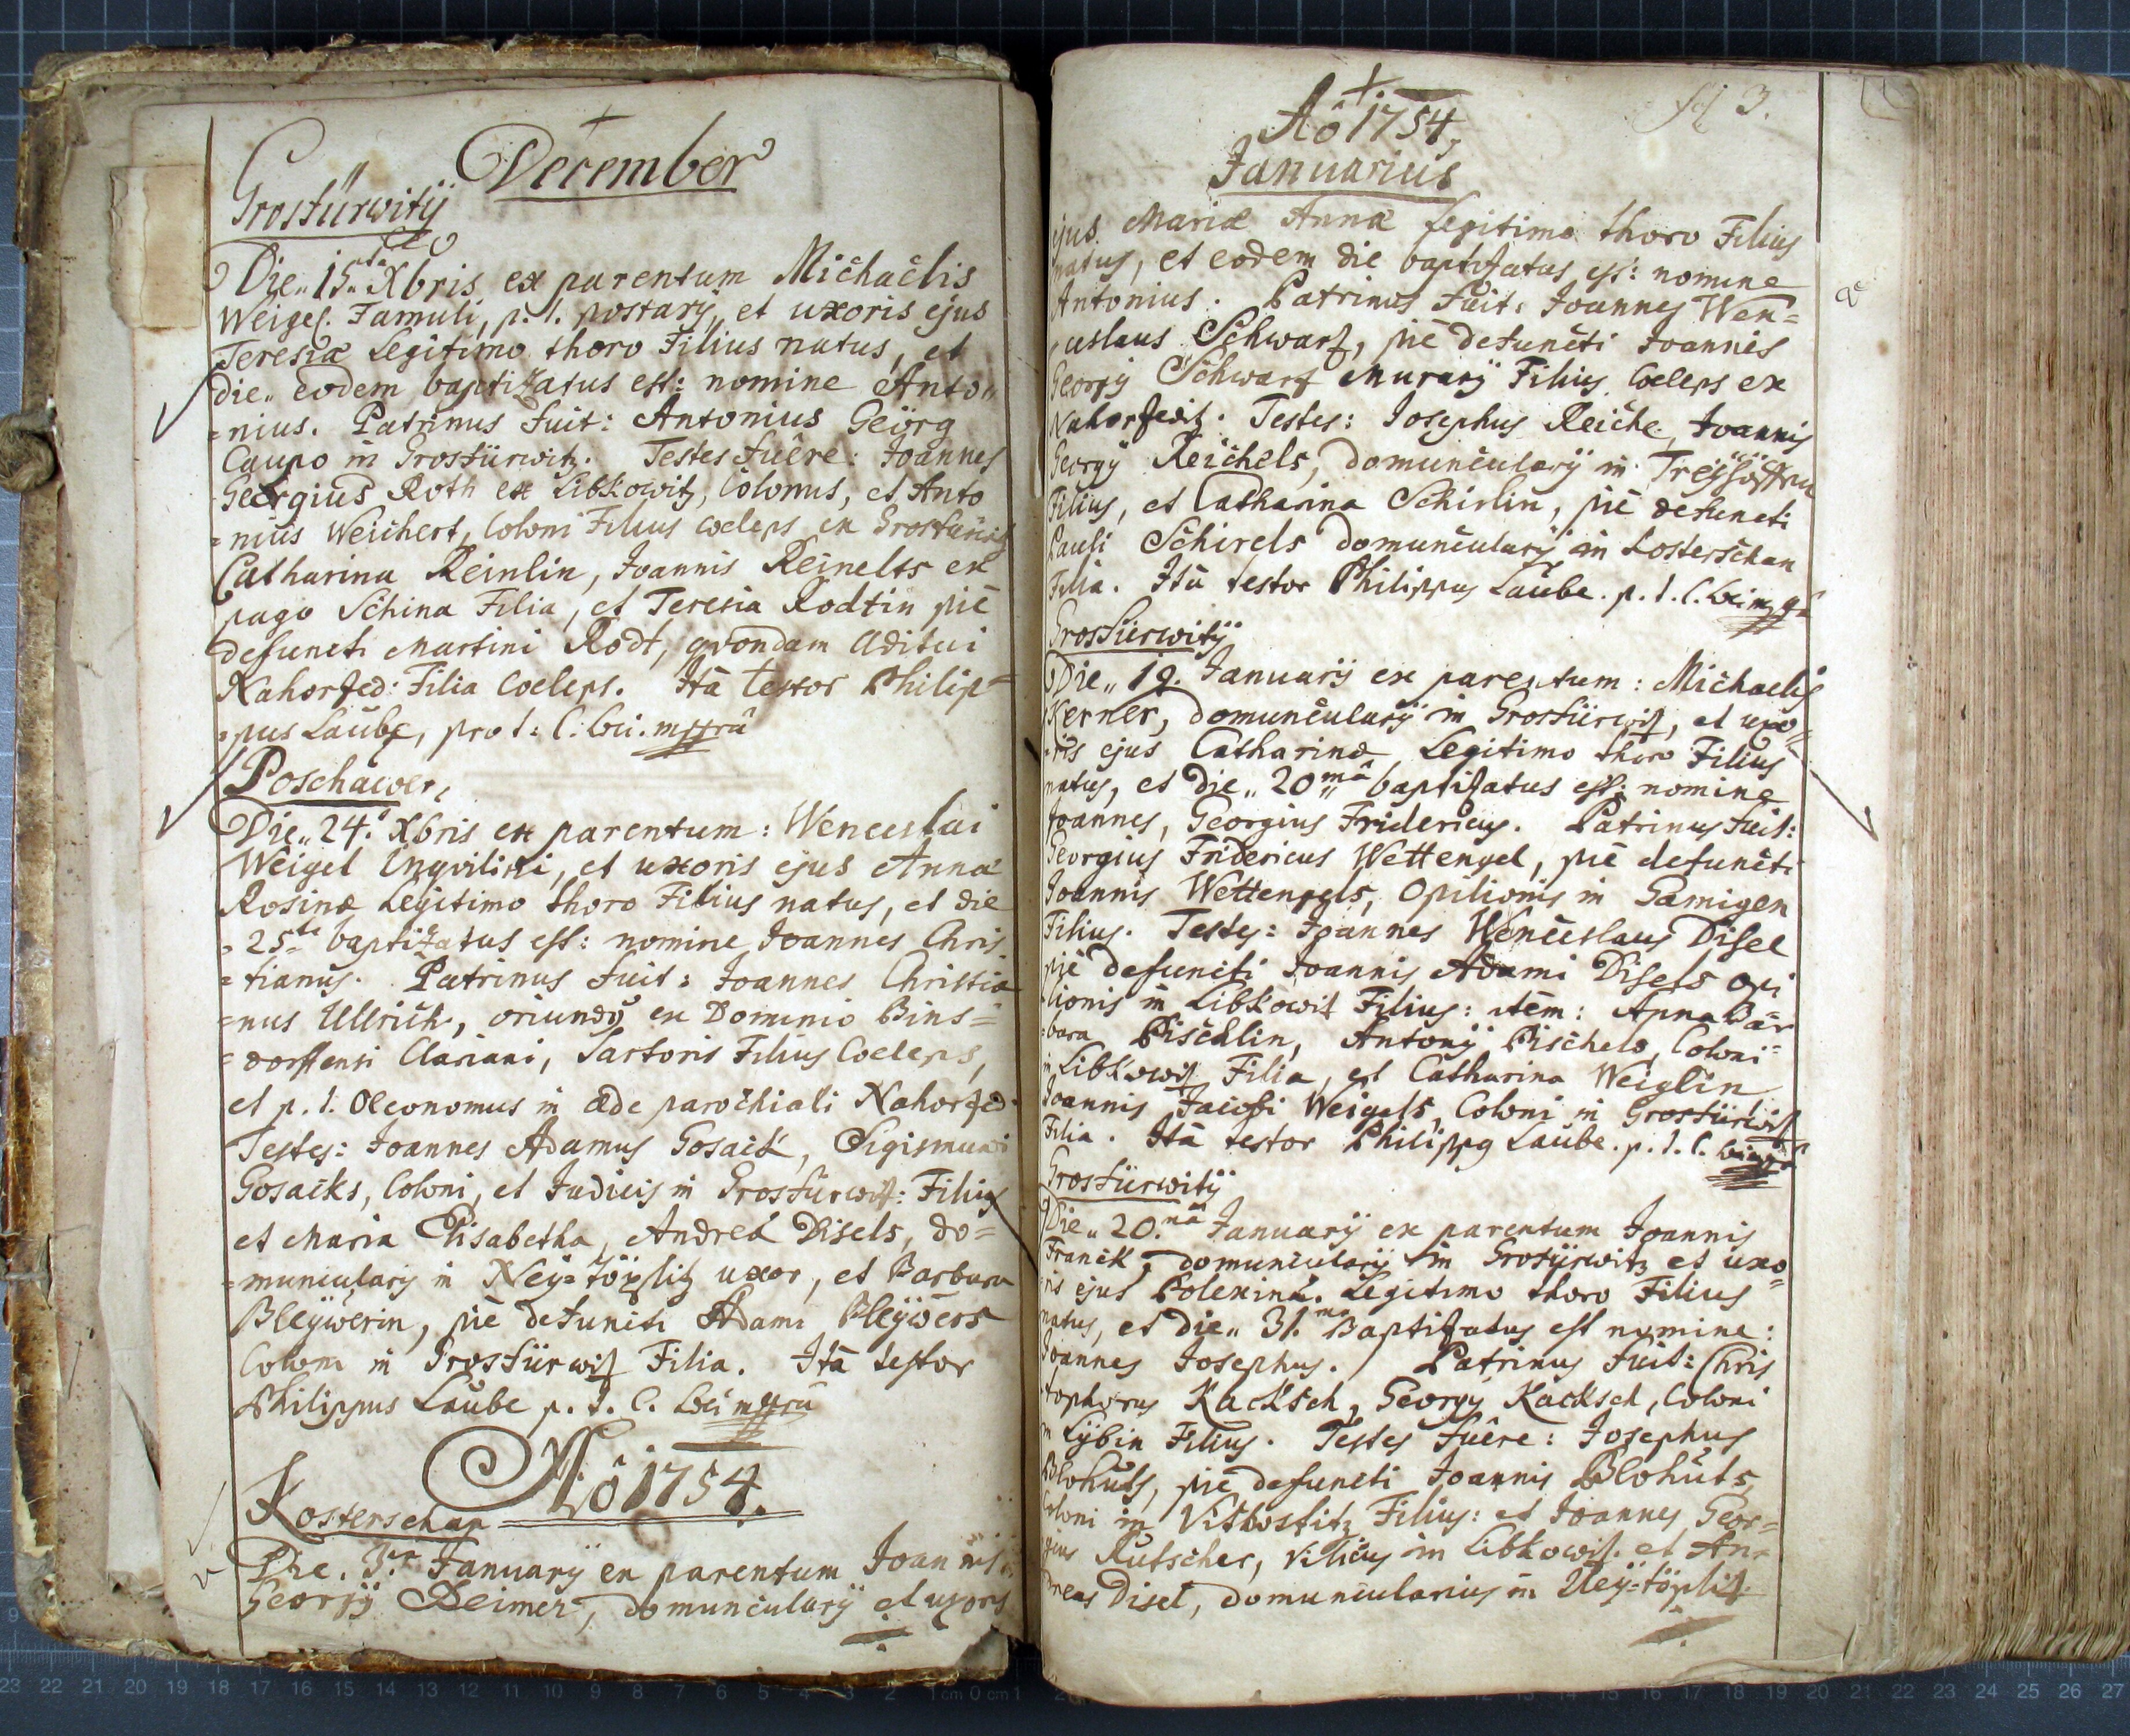 December
Grosfürwitÿ
Die„ 15ta Xbris ex parentum Michaelis
Weigel. Famuli, p. t. postarÿ, et uxoris ejus
Teresiæ Legitimo thoro Filius natus, et
die„ eodem baptizatus est: nomine Anto„
=nius. Patrinus fuit: Antonius Geörg
Caupo in Grosfürwitz. Testes fuêre: Joannes
Georgius Roth ex Libkowitz, Colonus, et Anto
=nius Weichert, Coloni Filius coeleps ex
Catharina Reinlin, Joannis Reinelts ex
pago Schina Filia, et Teresia Rodtin piè
defuncti Martini Rodt, qvondam Aditui
Nahorzed: Filia Coeleps. Ità testor Philip=
=pus Laube, pro t: C: mppriâ
Poschawer,
Die„ 24. Xbris ex parentum: Wenceslai
Weigel Inqvilini, et uxoris ejus Annæ
Rosinæ Legitimo thoro Filius natus, et die
=25ta baptizatus est: nomine Joannes Chris
=tianus. Patrinus fuit: Joannes Christia
=nus Ullrich, oriundg ex Dominio Bins=
=dorffensi Clariani, Sartoris Filius Coeleps,
et p. t. Oeconomus in æde parochiali Nahorzed.
Testes: Joannes Adamus Gosack, Sigismundi
Gosacks, Coloni, et Judicis in Grosfürwitz: Filius
et Maria Elisabetha, Andreä Disels, do=
=muncularÿ in Neÿ=töplitz uxor, et Barbara
Bleÿwerin, piè defuncti Adami Bleÿwers
Coloni in Grosfürwitz Filia. Ità testor
Philippus Laube p. t. C. mppriâ
Aô 1754.
Kosterschan
Die. 3. Januarÿ ex parentum Joannis
Georgÿ Deimer, domuncularÿ et uxoris
3.
Aô 1754,
Januarius
ejus Mariæ Annæ Legitimo thoro Filius
natus, et eodem die baptizatus est: nomine
Antonius. Patrinus fuit: Joannes Wen=
ceslaus Schwartz, piè defuncti Joannis
Georgÿ Schwartz Murarÿ Filius Coeleps ex
Nahorzeditz. Testes: Josephus Reiche, Joannis
Georgÿ Reichels, domuncularÿ in
Filius, et Catharina Schirlin, piè defuncti
Pauli Schirels domuncularÿ in Kosterschan
Filia. Ità testor Philippus Laube. p. t. C.
Grosfürwitÿ
Die„ 19. Januarÿ ex parentum: Michaelis
Kerner, domuncularÿ in Grosfürwitz, et uxo=
=ris ejus Catharinæ Legitimo thoro Filius
natus, et die„ 20mâ baptizatus est: nomine
Joannes, Georgius Fridericus. Patrinus fuit:
Georgius Fridericus Wettengel, piè defuncti
Joannis Wettengels, Opilionis in Gamigen
Filius. Testes: Joannes Wenceslaus Disel
piè defuncti Joannis Adami Disels Opi
lionis in Libkowitz Filius: item: Anna Bar
=bara Pischlin, Antonÿ Pischels, Coloni=
in Libkowitz Filia, et Catharina Weiglin,
Joannis Jacobi Weigels, Coloni in Grosfürwitz
Filia. Ità testor Philippg Laube. p. t. C.
Grosfürwitÿ
Die„ 20.nâ Januarÿ ex parentum Joannis
Franck, domuncularÿ in Grosÿrwitz et uxo=
ris ejus Polexinä. Legitimo thoro Filius
natus, et die„ 31.ma Baptizatus est nomine:
Joannes Josephus. Patrinus fuit: Chris
tophorus Kacksch, Georgÿ Kacksch, Coloni
in Lÿbin Filius. Testes fuêre: Josephus
Blohuts, piè defuncti Joannis Blohuts
Coloni in Filius: et Joannes Geor=
gius Kutscher, Vilicus in Libkowitz. et An=
dreas Disel, domuncularius in Neÿ=töplitz.